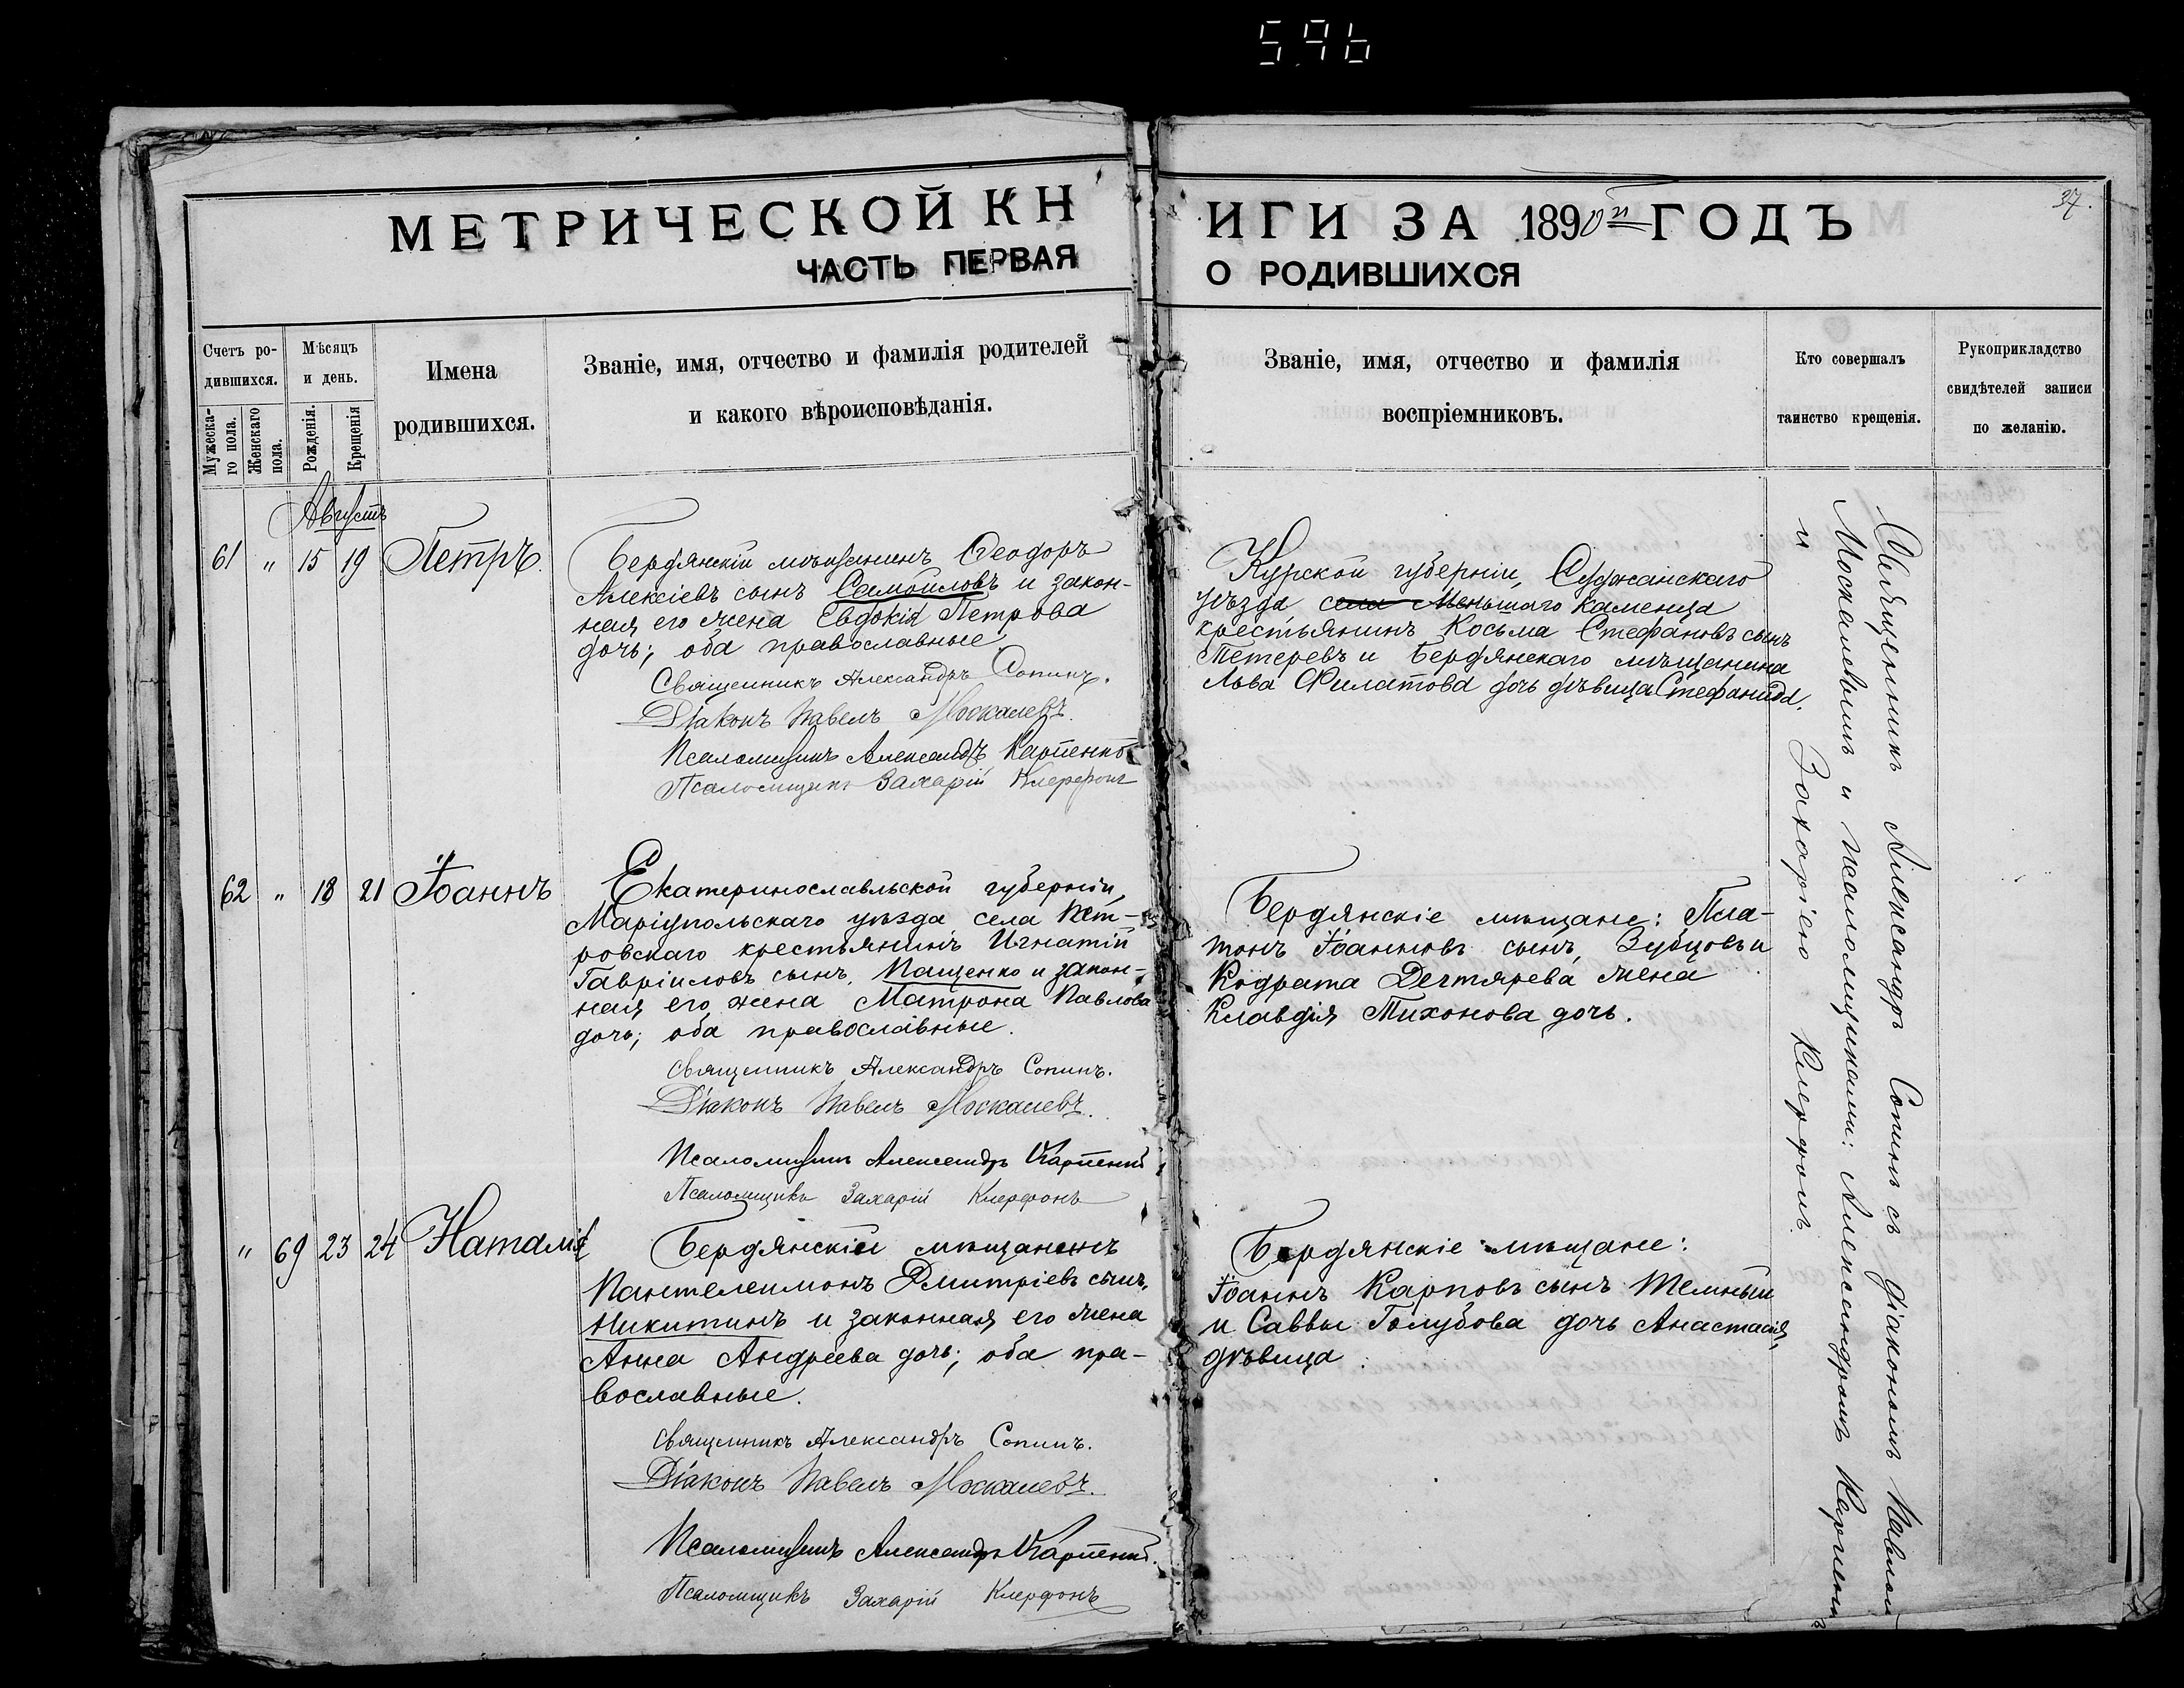 596
МЕТРИЧЕСКОЙ КН
ЧАСТЬ ПЕРВАЯ
ИГИ ЗА 1890й ГОДЪ
О РОДИВШИХСЯ
37.
Счетъ ро-
дившихся.
Мужеска-
го пола.
Женскаго
пола.
Мѣсяцъ
и день.
Рожденія.
Крещенія
Имена
родившихся.
Званіе, имя, отчество и фамилія родителей
и какого вѣроисповѣданія.
Званіе, имя, отчество и фамилія
воспріемниковъ.
Кто совершалъ
таинство крещенія.
Рукоприкладство
свидѣтелей записи
по желанію.
Августъ
61 " 15 19 Петръ.
Бердянскій мѣщанинъ Ѳеодоръ
Алексіевъ сынъ Самойловъ и закон-
ная его жена Евдокія Петрова
дочь; оба православные.
Священникъ Александръ Сопинъ.
Діаконъ Павелъ Москалевъ.
Псаломщикъ Александръ Карпенко
Псаломщикъ Захарій Клерфонъ
Курской губерніи, Суджанскаго
уѣзда села Меньшаго Каменца
крестьянинъ Косьма Стефановъ сынъ
Тетеревъ и Бердянскаго мѣщанина
Льва Филатова дочь дѣвица Стефанида.
62 " 18 21 Іоаннъ
Екатеринославльской губерніи,
Маріупольскаго уѣзда села Пет-
ровскаго крестьянинъ Игнатій
Гавріиловъ сынъ Пащенко и закон-
ная его жена Матрона Павлова
дочь; оба православные.
Священникъ Александръ Сопинъ.
Діаконъ Павелъ Москалевъ.
Псаломщикъ Александръ Карпенко
Псаломщикъ Захарій Клерфонъ
Бердянскіе мѣщане: Пла-
тонъ Іоанновъ сынъ Зубцовъ и
Кодрата Дегтярева жена
Клавдія Тихонова дочь.
" 69 23 24 Наталія
Бердянскій мѣщанинъ
Пантелеимонъ Дмитріевъ сынъ
Никитинъ и законная его жена
Анна Андреева дочь; оба пра-
вославные.
Священникъ Александръ Сопинъ.
Діаконъ Павелъ Москалевъ.
Псаломщикъ Александръ Карпенко.
Псаломщикъ Захарій Клерфонъ
Бердянскіе мѣщане:
Іоаннъ Карповъ сынъ Темный
и Саввы Голубова дочь Анастасія,
дѣвица.
Священникъ Александръ Сопинъ съ діакономъ Павломъ
Москалевымъ и псаломщиками: Александромъ Карпенко
и Захаріею Клерфонъ.